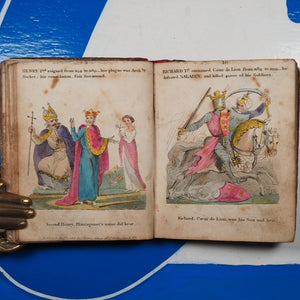 HENRY 2nd reigned from 1154 to 1189. his plague was Arch bp
Becket; his consolation, Fair Rosamond.
Second Henry, Plantagenet's name did bear.
RICHARD 1st surnamed Cœur de Lion from 1189 to 1199. he
defeated SALADIN, and killed 40000 of his Soldiers.
Richard, Cœur de Lion, was his Son and heir.